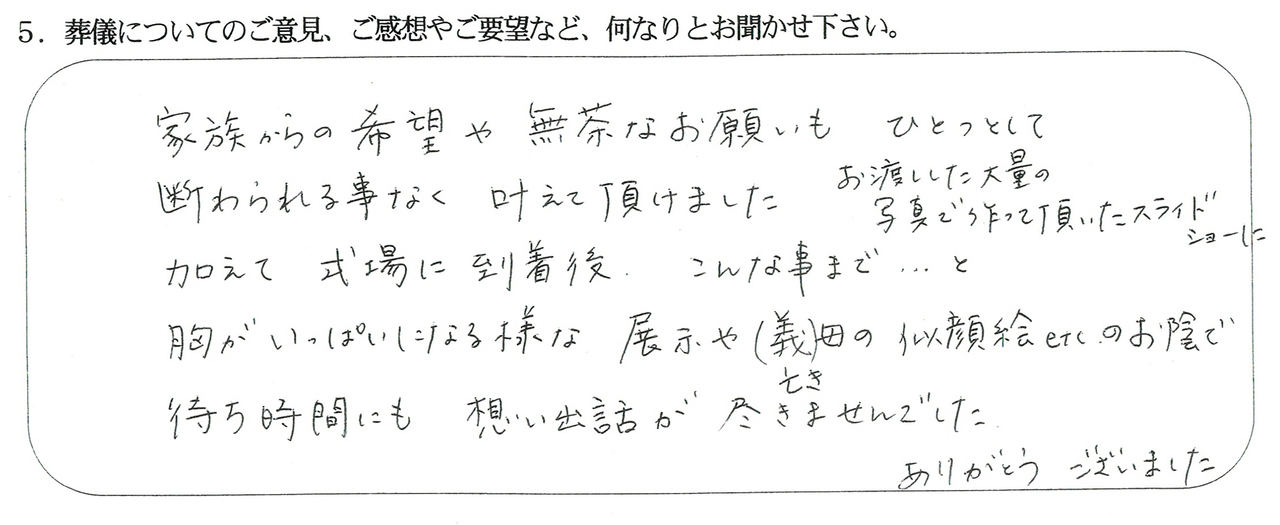 5．葬儀についてのご意見、ご感想やご要望など、何なりとお聞かせ下さい。
家族からの希望や無茶なお願いも ひとつとして
断わられる事なく 叶えて頂けました
お渡しした大量の
写真で作って頂いたスライド
ショーに
加えて 式場に到着後. こんな事まで…と
胸がいっぱいになる様な 展示や(義)母の似顔絵etc.のお陰で
待ち時間にも 想い出話が尽きませんでした.
とき
ありがとう ございました